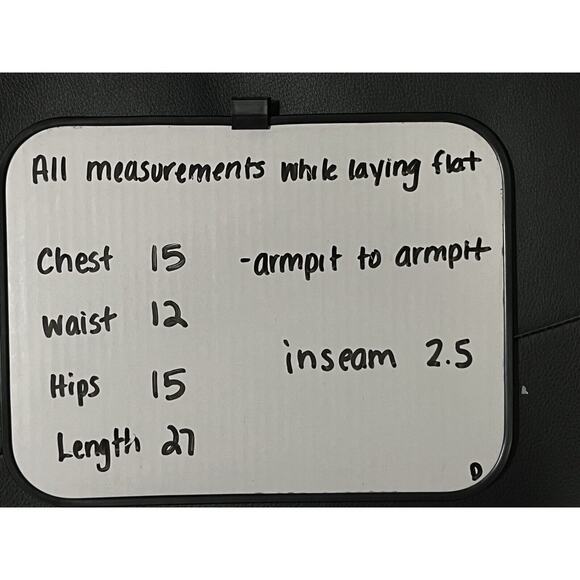 All measurements while laying flat
Chest 15 -armpit to armpit
Waist 12
inseam 2.5
Hips 15
Length 27
D